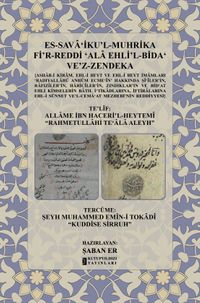 ES-SAVÂ'İKU'L-MUHRİKA
Fİ'R-REDDİ 'ALÂ EHLİ'L-BİDA'
VE'Z-ZENDEKA
[ASHÂB-I KİRÂM, EHL-İ BEYT VE EHL-İ BEYT İMÂMLARI
"RADIYALLÂHÜ ANHÜM ECME'ÎN" HAKKINDA Şİ'ÎLER'İN,
RÂFIZÎLER'İN, HÂRİCÎLER'İN, ZINDIKLAR'IN VE BİD'AT
EHLİ KİMSELER'İN BÂTIL İ'TİKÂDLARINA, İFTİRÂLARINA
EHL-İ SÜNNET VE'L-CEMÂ'AT MEZHEBİ'NİN REDDİYESİ]
TE'LÎF:
ALLÂME İBN HACERİ'L-HEYTEMÎ
"RAHMETULLÂHİ TE'ÂLÂ ALEYH"
TERCÜME:
ŞEYH MUHAMMED EMÎN-İ TOKÂDÎ
"KUDDİSE SİRRUH"
HAZIRLAYAN:
ŞABAN ER
KUTUPYILDIZI
YAYINLARI